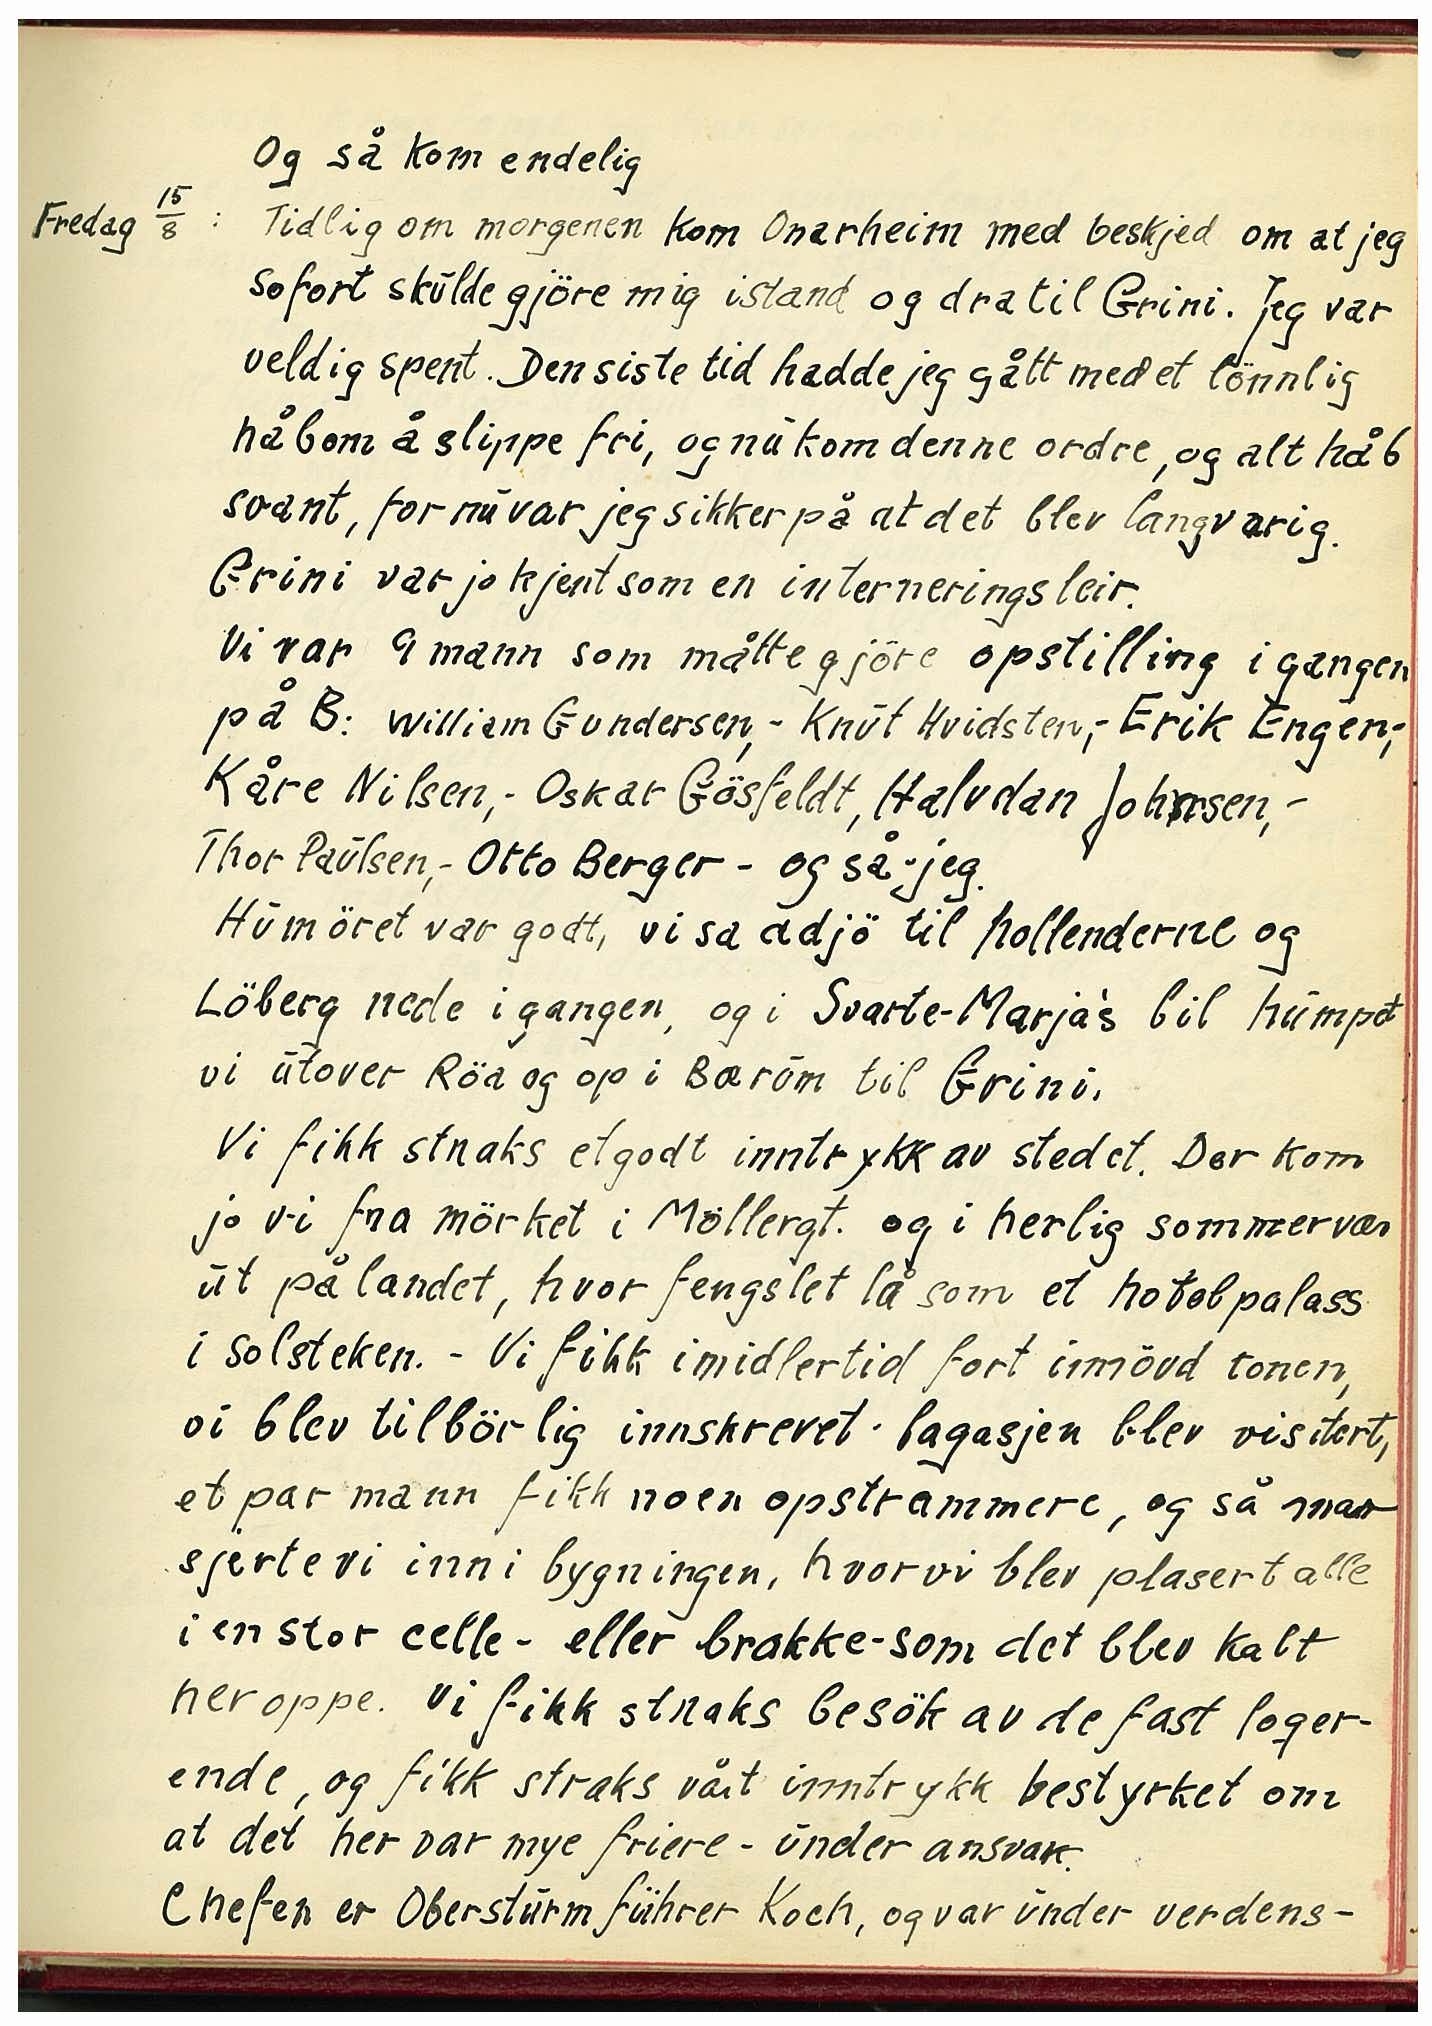 Og så kom endelig
Fredag 15/8 : Tidlig om morgenen kom Onarheim med beskjed om at jeg
sofort skulde gjöre mig istand og dra til Grini. Jeg var
veldig spent. Den siste tid hadde jeg gått med et lönnlig
håb om å slippe fri, og nu kom denne ordre, og alt håb
svant, for nu var jeg sikker på at det blev langvarig.
Grini var jo kjent som en interneringsleir.
Vi var 9 mann som måtte gjöre opstilling i gangen
på B: William Gundersen,- Knut Hvidsten,- Erik Engen,-
Kåre Nilsen,- Oskar Gösfeldt, Halvdan Johnsen,-
Thor Paulsen,- Otto Berger - og så - jeg.
Humöret var godt, vi sa adjö til hollenderne og
Löberg nede i gangen, og i Svarte-Marja's bil humpet
vi utover Röa og op i Bærum til Grini.
Vi fikk straks et godt inntrykk av stedet. Der kom
jo vi fra mörket i Möllergt. og i herlig sommervær
ut på landet, hvor fengslet lå som et hotelpalass
i solsteken. - Vi fikk imidlertid fort innövd tonen,
vi blev tilbörlig innskrevet. bagasjen blev visitert,
et par mann fikk noen opstrammere, og så mar
sjerte vi inn i bygningen, hvor vi blev plasert alle
i en stor celle - eller brakke - som det blev kalt
her oppe. Vi fikk straks besök av de fast loger-
ende, og fikk straks vårt inntrykk bestyrket om
at det her var mye friere - under ansvar.
Chefen er Obersturmführer Koch, og var under verdens-